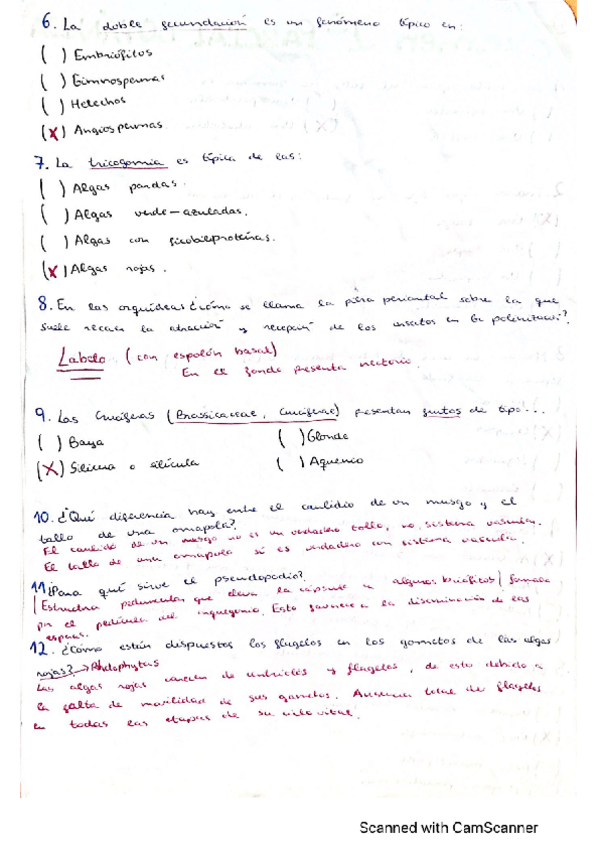 6. La doble fecundación es un fenómeno típico en:
( ) Embriófitos
( ) Gimnospermas
( ) Helechos
(X) Angiospermas
7. La tricogamia es típica de las:
( ) Algas pardas.
( ) Algas verde-azuladas.
( ) Algas con ficobiliproteínas.
(X) Algas rojas.
8. En las orquídeas ¿cómo se llama la pieza periantal sobre la que
suele recaer la atracción y recepción de los insectos en la polinización?
Labelo (con espolón basal)
En el fondo presenta nectario.
9. Las Crucíferas (Brassicaceae, Cruciferae) presentan frutos de tipo...
( ) Baya
( ) Glande
(X) Silicua o silícula
( ) Aquenio
10. ¿Qué diferencia hay entre el caulidio de un musgo y el
tallo de una amapola?
El caulidio de un musgo no es un verdadero tallo, no sistema vascular.
El tallo de una amapola sí es verdadero con sistema vascular.
11. ¿Para qué sirve el pseudopodio?
Estructura pedunculada que eleva la cápsula en algunos briófitos formada
por el pedículo del arquegonio. Esto favorece a la diseminación de las
esporas.
12. ¿Cómo están dispuestos los flagelos en los gametos de las algas
rojas? → Rhodophytas
Las algas rojas carecen de y flagelos, de esto debido a
la falta de movilidad de sus gametos. Ausencia total de flagelos
en todas las etapas de su ciclo vital.
Scanned with CamScanner